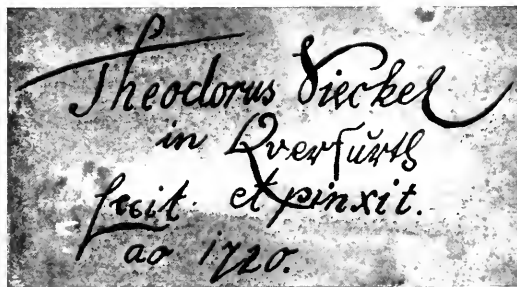 Theodorus Vieckel
in Qverfürth
fecit et pinxit.
ao 1720.